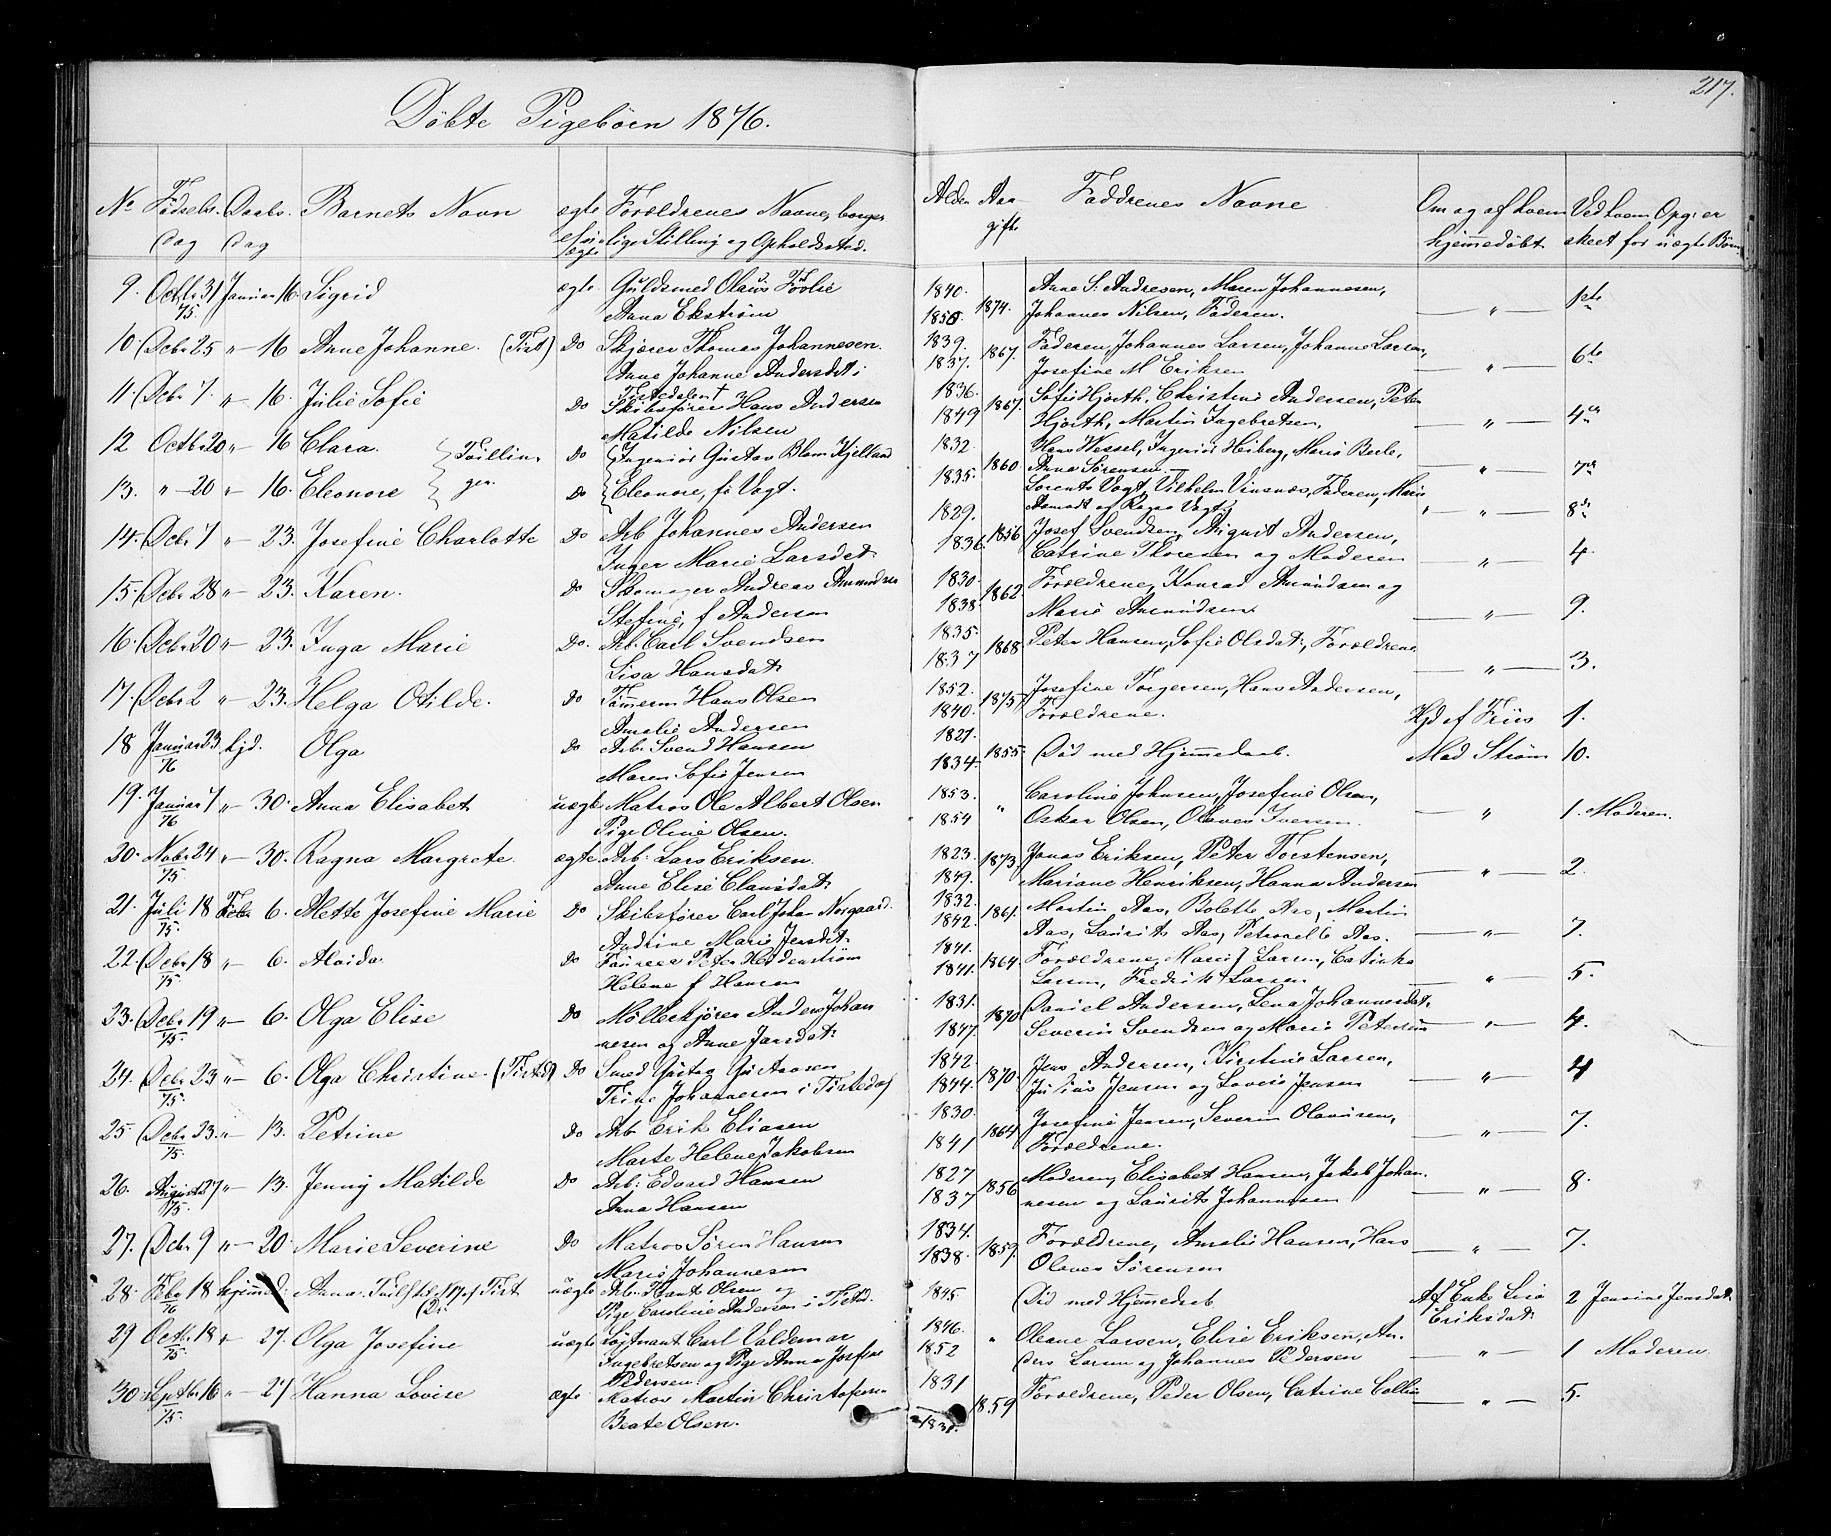 217.
Döbte Pigebörn 1876.
No Fødsels- Daabs- Barnets Navn ægte Forældrenes Navne, borger Alder Aar Faddrenes Navne Om og af hvem Ved hvem Opg. er
dag dag el. uægte lige Stilling og Opholdsted. gifte hjemmedöbt. skeet for uægte Börn
9. Octbr 31 Januar 16 Sigrid ægte Guldsmed Olaus Fövlie 1840. 1874. Anne S. Andresen, Maren Johannesen, — " — 1ste
75. Anna Ekström 1850. Johannes Nilsen, Faderen.
10. Decbr 25 " — 16 Anne Johanne. (Tist) Do Skjærer Thomas Johannesen. 1839. 1867. Faderen, Johannes Larsen, Johanne Larsen, — " — 6te
Anne Johanne Andersdat i Tistedalen 1837. Josefine M Eriksen
11. Decbr 7 " — 16. Julie Sofie Do Skibsförer Hans Andersen 1836. 1867. Sofie Hjorth, Christine Andersen, Peter — " — 4de
Matilde Nilsen 1849 Hjorth, Martin Ingebretsen.
12 Octbr 20 " — 16 Clara. Tvillin- Do Ingeniör Gustav Blom Kjelland 1832. 1860. Hans Wessel, Ingeniör Heiberg, Marie Berle, — " — 7de
gen. 1835. Anna Sörensen.
13. " — 20 " — 16. Eleonore Do Eleonore, f. Vogt. Lorents Vogt, Vilhelm Vinsnes, Faderen, Marie
Aamodt og Ragna Vogt — " — 8de
14. Decbr 7 " — 23. Josefine Charlotte Do Arb Johannes Andersen 1829. 1856 Josef Svendsen, August Andersen, — " — 4.
Inger Marie Larsdat. 1836. Catrine Thoresen og Moderen
15. Decbr 28 " — 23. Karen. Do Skomager Andreas Amundsen 1830. 1862. Forældrene, Konrad Amundsen og — " — 9.
Stefine, f Andersen 1838. Marie Amundsen.
16. Decbr 20 " — 23. Inga Marie Do. Arb. Carl Svendsen 1835. 1868. Peter Hansen, Sofie Olsdat., Forældrene — " — 3.
Lisa Hansdat 1837
17. Decbr 2 " — 23. Helga Otilde. Do Tömmerm Hans Olsen 1852. 1875. Josefine Torgersen, Hans Andersen, Hjd af Friis 1.
Amalie Andersen 1840. Forældrene.
18 Januar 23 hjd. Olga Do Arb. Svend Hansen 1821. 1855. Död med Hjemmedaab. Mad Ström 10.
76 Maren Sofie Jensen 1834.
19. Januar 7 " — 30. Anna Elisabet uægte Matros Ole Albert Olsen 1853. " Caroline Johnsen, Josefine Olsen, — " — 1. Moderen.
76 Pige Oline Olsen. 1854 Oskar Olsen, Olaves Iversen.
20. Nobr 24 " — 30. Ragna Margrete. ægte Arb: Lars Eriksen. 1823. 1873. Jonas Eriksen, Peter Torstensen, — " — 2.
75. Anne Elise Clausdat. 1849. Mariane Henriksen, Hanna Andersen
21. Juli 18 Febr 6. Mette Josefine Marie Do Skibsförer Carl Johan Norgaard. 1832. 1861. Martin Aas, Bolette Aas, Martin — " — 7.
75. Andrine Marie Jensdat. 1842. Aas, Laurits Aas, Petronelle Aas.
22. Decbr 18 " — 6. Alvida. Do Peter Hedenström 1841. 1864. Forældrene, Marie Larsen, Catinka — " — 5.
75. Helene f Hansen 1841. Larsen, Fredrik Larsen
23. Decbr 19 " — 6. Olga Elise Do Möllerkjörer Anders Johan 1831. 1870 Daniel Andersen, Lena Johannesdat, — " — 4.
75. nesen og Anne Jansdat. 1847. Severin Svendsen og Marie Petersen
24. Decbr 23 " — 6. Olga Christine. (Tisted) Do Smed Gustav Gustavsen 1842. 1870. Jens Andersen, Kirstine Larsen, — " — 4
75. Trine Johannesen i Tistedal 1844. Julius Jensen og Lovise Jensen
25 Decbr 23. " — 13. Petrine Do Arb Erik Eliasen 1830. 1864. Josefine Jensen, Severin Olausen, — " — 7.
75. Marte Helene Jakobsen 1841 Forældrene.
26. August 27 " — 13. Jenny Matilde Do Arb: Edvard Hansen 1827 1856 Moderen, Elisabet Hansen, Jakob Johan- — " — 8.
75. Anna Hansen 1837 nesen og Laurits Johannesen
27. Decbr 9 " — 20. Marie Severine Do Matros Sören Hansen 1834. 1859. Forældrene, Amalie Hansen, Hans — " — 7.
Marie Johannesen 1838. Olaves Sörensen
28. Febr 18 hjemmed. Anna. Tist uægte Arb. Knut Olsen og 1845 Död med Hjemmedaab Af Enke Lise 2 Jensine Jensdat
76 Pige Caroline Andersen i Tisted. Eriksdat
29 Octbr 18 " — 27. Olga Josefine uægte Löjtnant Carl Valdemar 1846. " Oleane Larsen, Elise Eriksen, An- — " — 1 Moderen.
75 Ingebretsen og Pige Anna Josefine Pedersen. 1852 ders Larsen og Johannes Pedersen
30 Septbr 16 " — 27 Hanna Lovise ægte Matros Martin Christofersen 1831 1859 Forældrene, Peder Olsen, Catrine Collin — " — 5.
75. Beate Olsen. 1831.